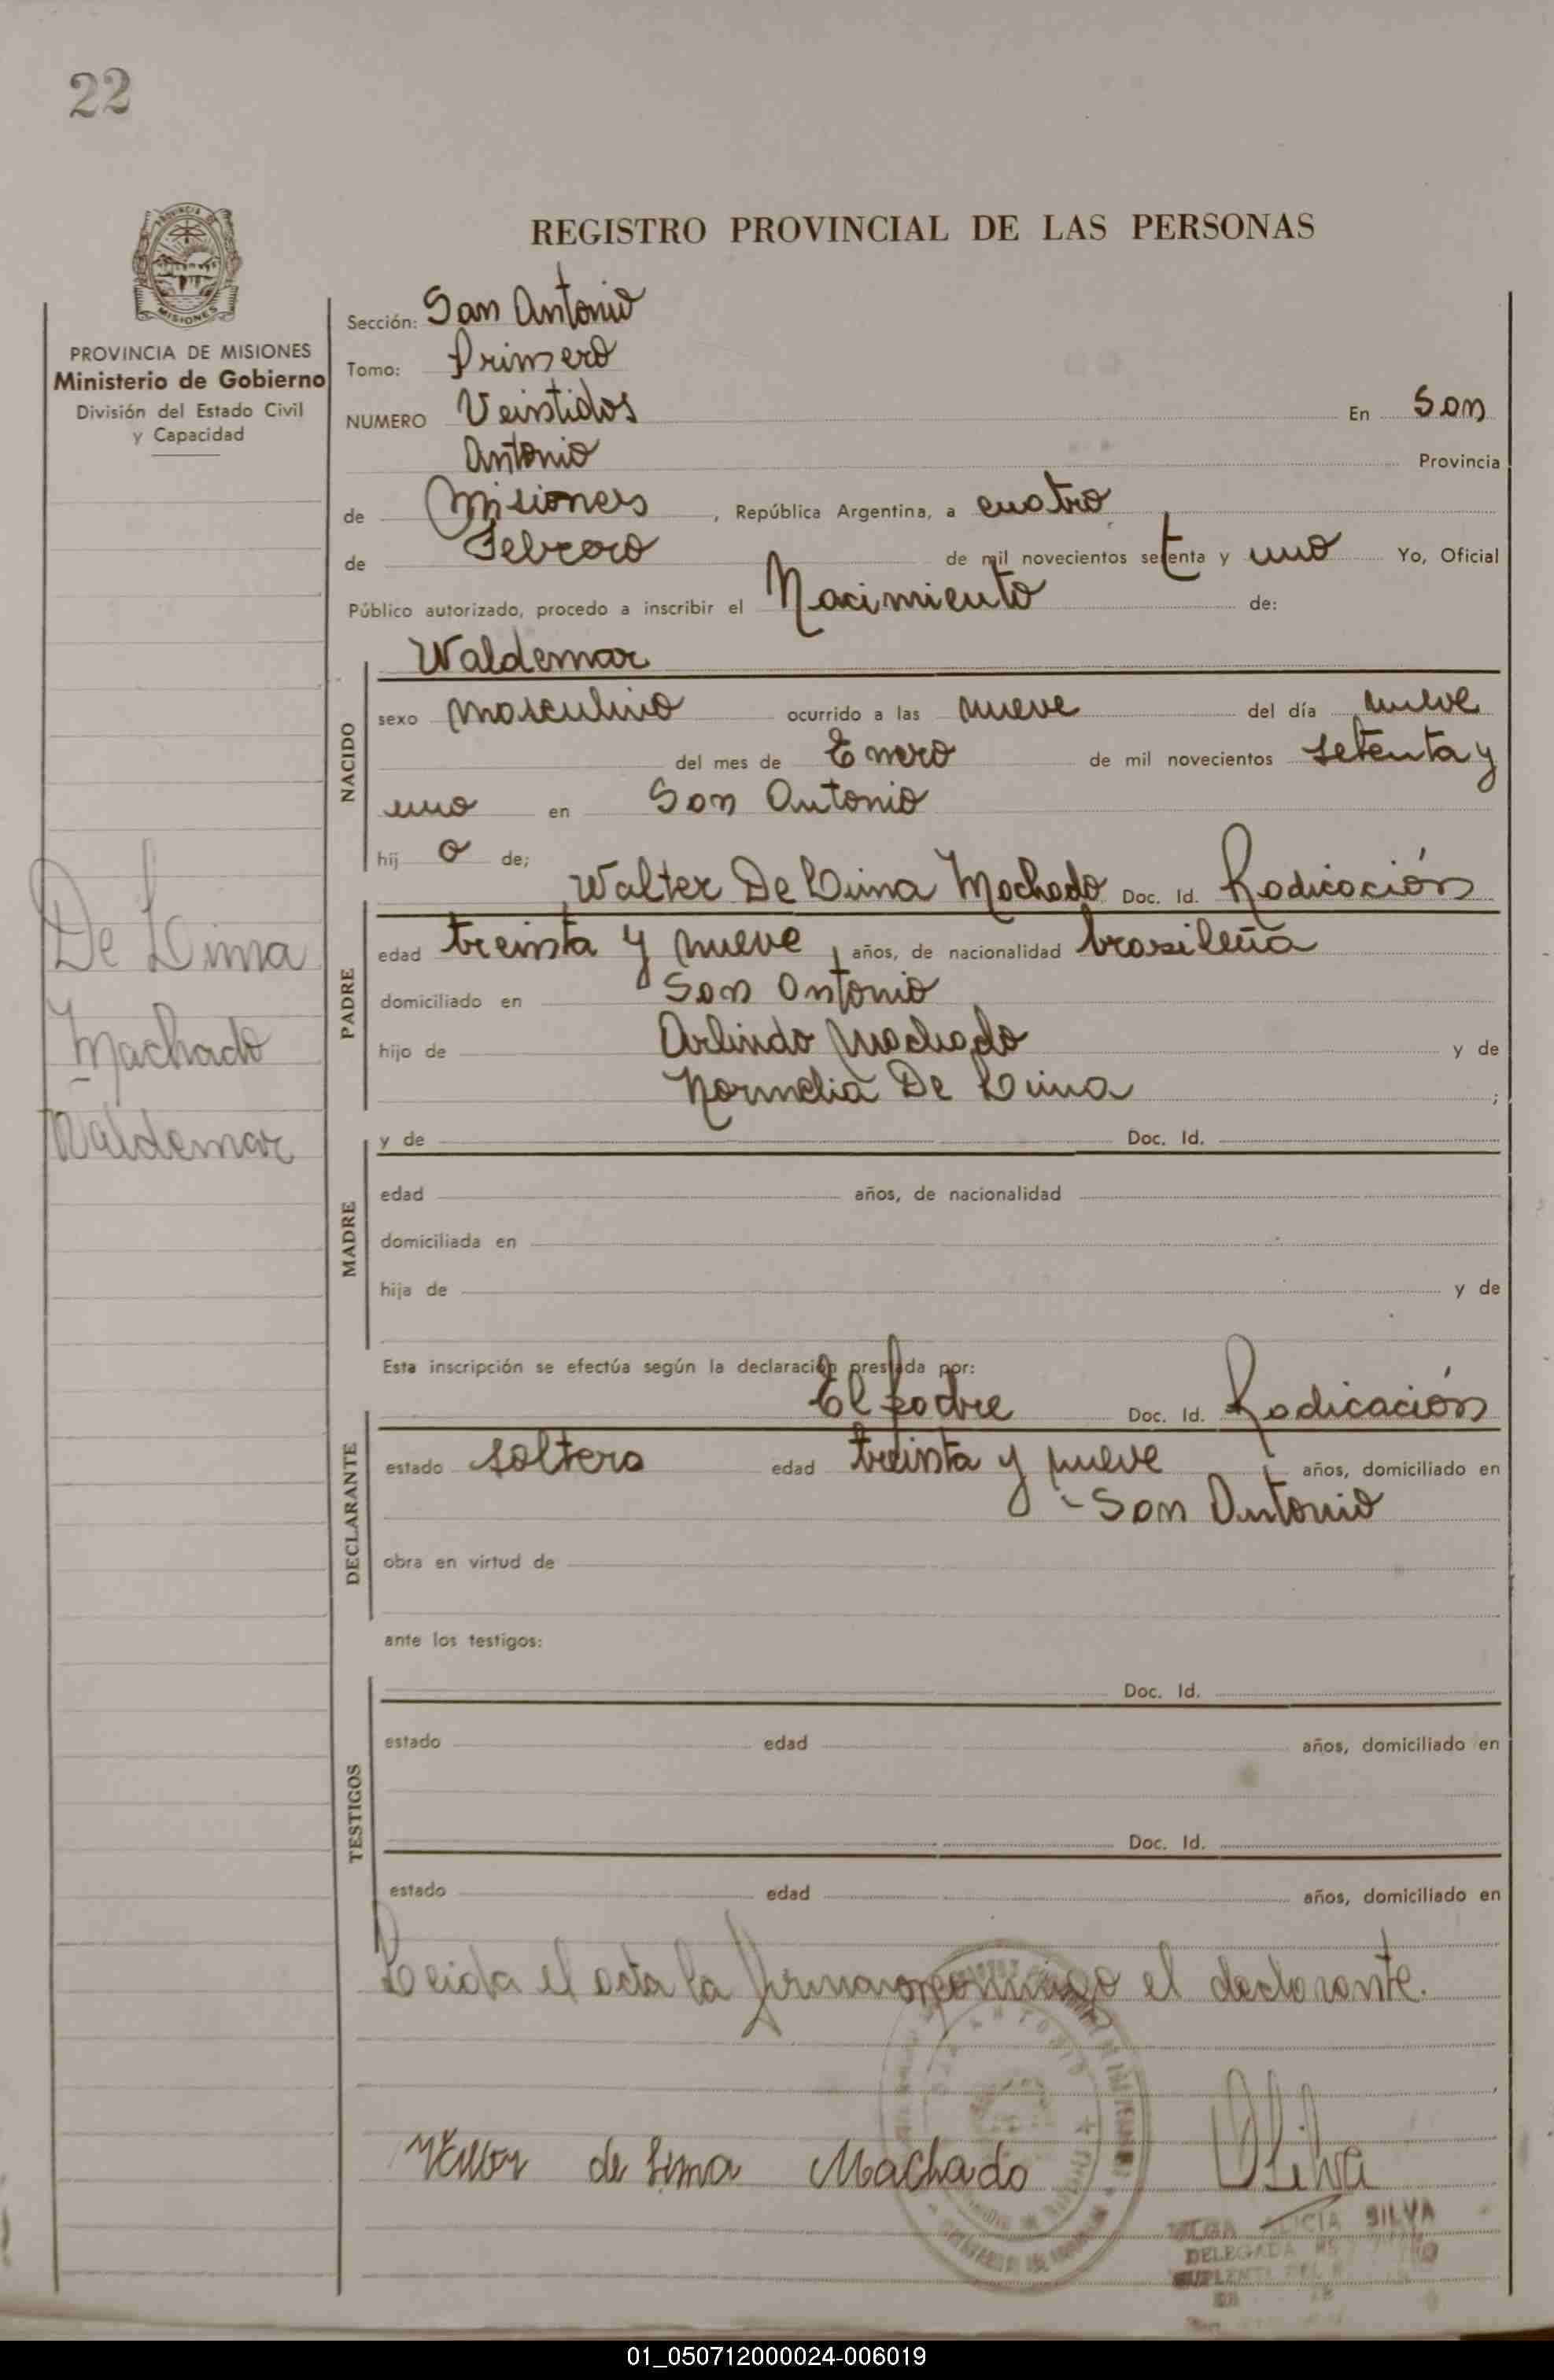 22
REGISTRO PROVINCIAL DE LAS PERSONAS
MISIONES
PROVINCIA DE MISIONES
Ministerio de Gobierno
División del Estado Civil
y Capacidad
De Lima
Machado
Waldemar
Sección: San Antonio
Tomo: Primero
NUMERO Veintidos En San
Antonio Provincia
de Misiones, República Argentina, a cuatro
de Febrero de mil novecientos setenta y uno Yo, Oficial
Público autorizado, procedo a inscribir el Nacimiento de:
NACIDO
Waldemar
sexo masculino ocurrido a las nueve del día nueve
del mes de Enero de mil novecientos setenta y
uno en San Antonio
hij o de;
PADRE
Walter De Lima Machado Doc. Id. Radicación
edad treinta y nueve años, de nacionalidad brasileña
domiciliado en San Antonio
hijo de Arlindo Machado y de
Normelia De Lima ;
MADRE
y de Doc. Id.
edad años, de nacionalidad
domiciliada en
hija de y de
Esta inscripción se efectúa según la declaración prestada por:
DECLARANTE
El padre Doc. Id. Radicación
estado soltero edad treinta y nueve años, domiciliado en
San Antonio
obra en virtud de
ante los testigos:
TESTIGOS
Doc. Id.
estado edad años, domiciliado en
Doc. Id.
estado edad años, domiciliado en
Leida el acta la firman conmigo el declarante.
de Lima Machado OSilva
ALICIA SILVA
DELEGADA
SUPLENTE DEL
01_050712000024-006019